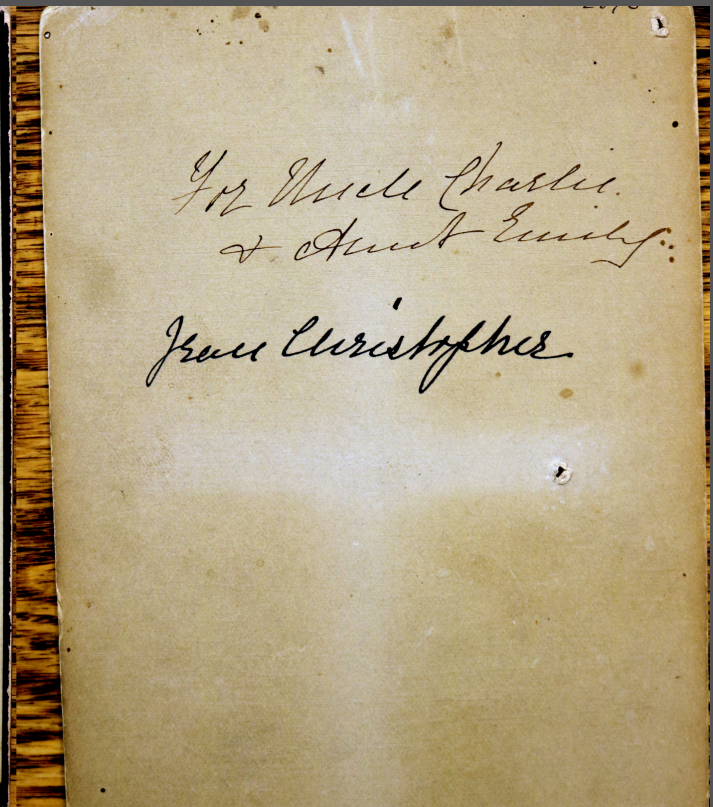 For Uncle Charlie.
& Aunt Emily.
Christopher